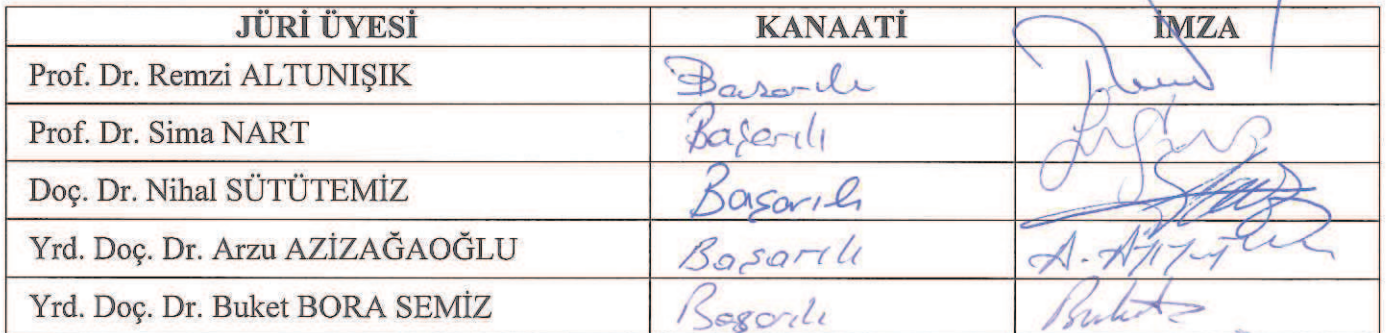 JÜRİ ÜYESİ KANAATİ İMZA
Prof. Dr. Remzi ALTUNIŞIK Başarılı
Prof. Dr. Sima NART Başarılı
Doç. Dr. Nihal SÜTÜTEMİZ Başarılı
Yrd. Doç. Dr. Arzu AZİZAĞAOĞLU Başarılı
Yrd. Doç. Dr. Buket BORA SEMİZ Başarılı